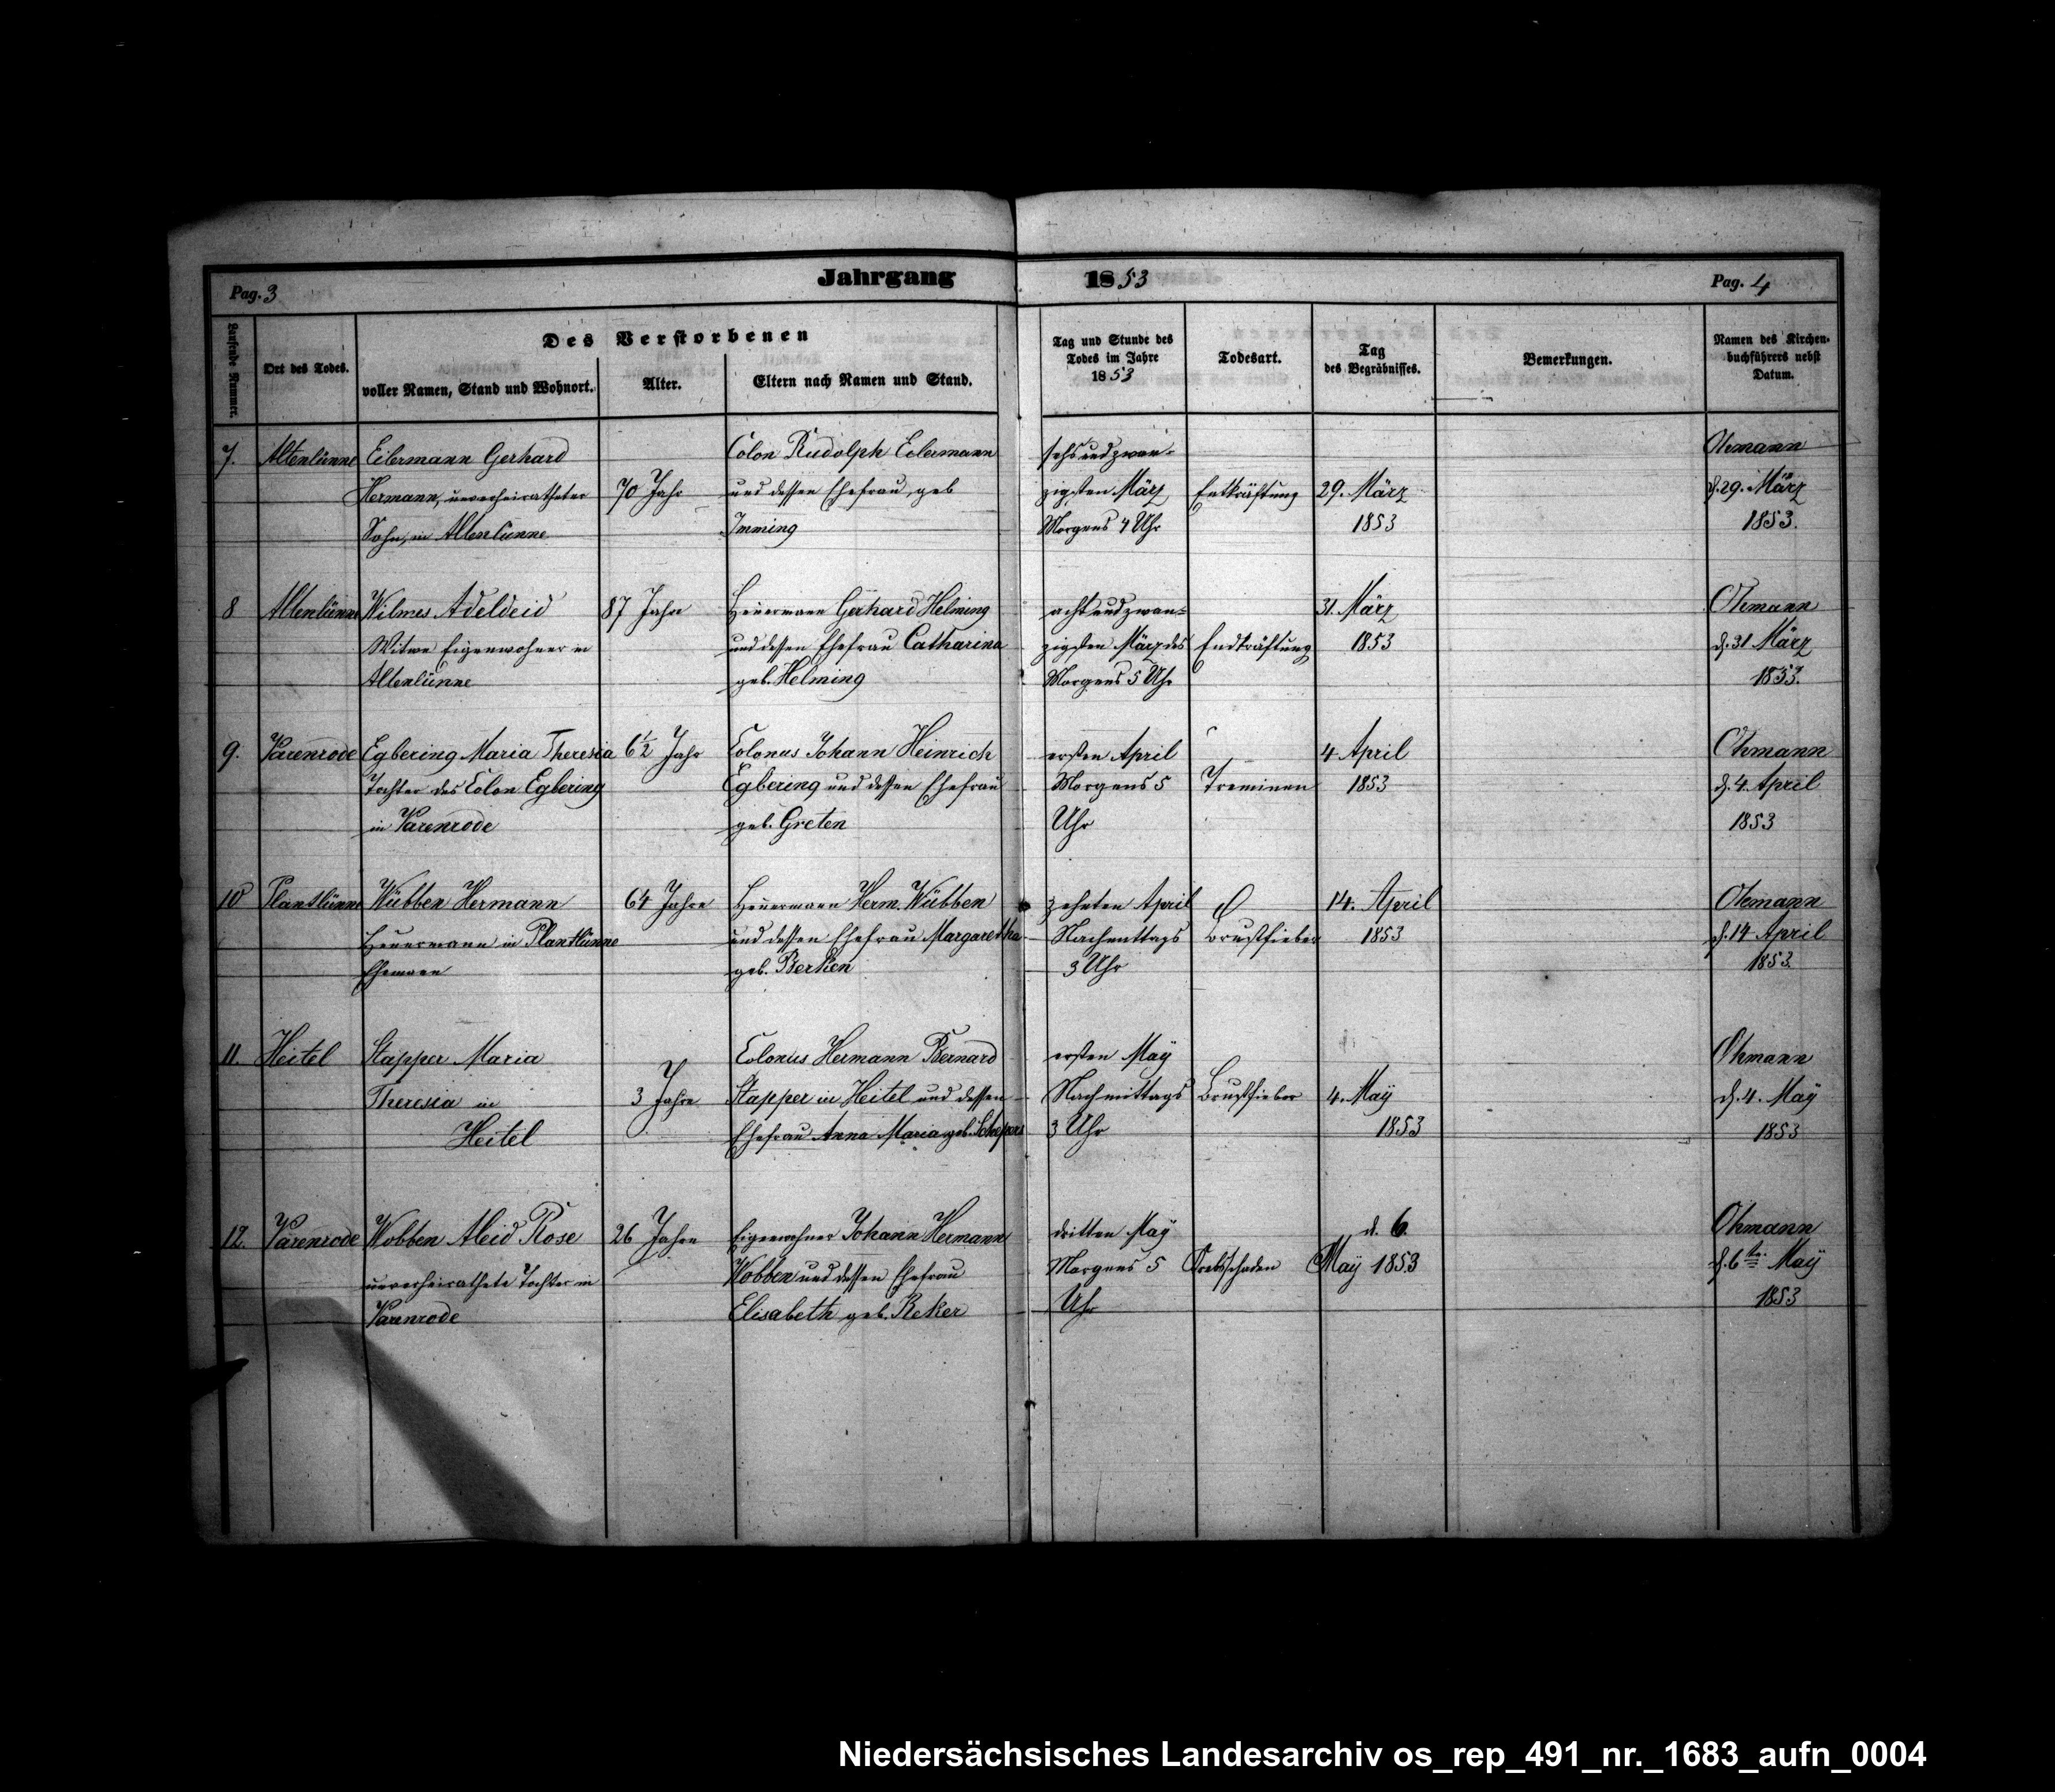 Pag. 3
Jahrgang 1853
Pag. 4
Laufende Nummer.
Ort des Todes.
Des Verstorbenen
voller Namen, Stand und Wohnort.
Alter.
Eltern nach Namen und Stand.
Tag und Stunde des
Todes im Jahre
1853
Todesart.
Tag
des Begräbnisses.
Bemerkungen.
Namen des Kirchen-
buchführers nebst
Datum.
7.
Altenlünne
Eilermann Gerhard
Hermann, unverheiratheter
Sohn, in Altenlünne
70 Jahr
Colon Rudolph Eilermann
und dessen Ehefrau, geb
Imming
sechsundzwan-
zigsten März
Morgens 4 Uhr
Entkräftung
29. März
1853
Ohmann
d. 29. März
1853.
8
Altenlünne
Wilmes Adeldeid
Witwe Eigenwohner in
Altenlünne
87 Jahre
Heuermann Gerhard Helming
und dessen Ehefrau Catharina
geb. Helming
achtundzwan-
zigsten März des
Morgens 5 Uhr
Endkräftung
31. März
1853
Ohmann
d. 31 März
1853.
9.
Varenrode
Egbering Maria Theresia
Tochter des Colon Egbering
in Varenrode
6½ Jahr
Colonus Johann Heinrich
Egbering und dessen Ehefrau
geb. Greten
ersten April
Morgens 5
Uhr
4 April
1853
Ohmann
d. 4. April
1853
10
Plantlünne
Wübben Hermann
Heuermann in Plantlünne
Ehemann
64 Jahre
Heuermann Herm. Wübben
und dessen Ehefrau Margaretha
geb. Berken
zehnten April
Nachmittags
3 Uhr
Brustfieber
14. April
1853
Ohmann
d. 14 April
1853.
11.
Heitel
Stapper Maria
Theresia in
Heitel
3 Jahre
Colonus Hermann Bernard
Stapper in Heitel und dessen
Ehefrau Anna Maria geb. Schepers
ersten Maÿ
Nachmittags
3 Uhr
Brustfieber
4. Maÿ
1853
Ohmann
d. 4. Maÿ
1853
12.
Varenrode
Wobben Aleid Rose
unverheirathete Tochter in
Varenrode
26 Jahre
Eigenwohner Johann Hermann
Wobben und dessen Ehefrau
Elisabeth geb. Reker
dritten Maÿ
Morgens 5
Uhr
Krebsschaden
d. 6.
Maÿ 1853
Ohmann
d. 6ten Maÿ
1853
Niedersächsisches Landesarchiv os_rep_491_nr._1683_aufn_0004